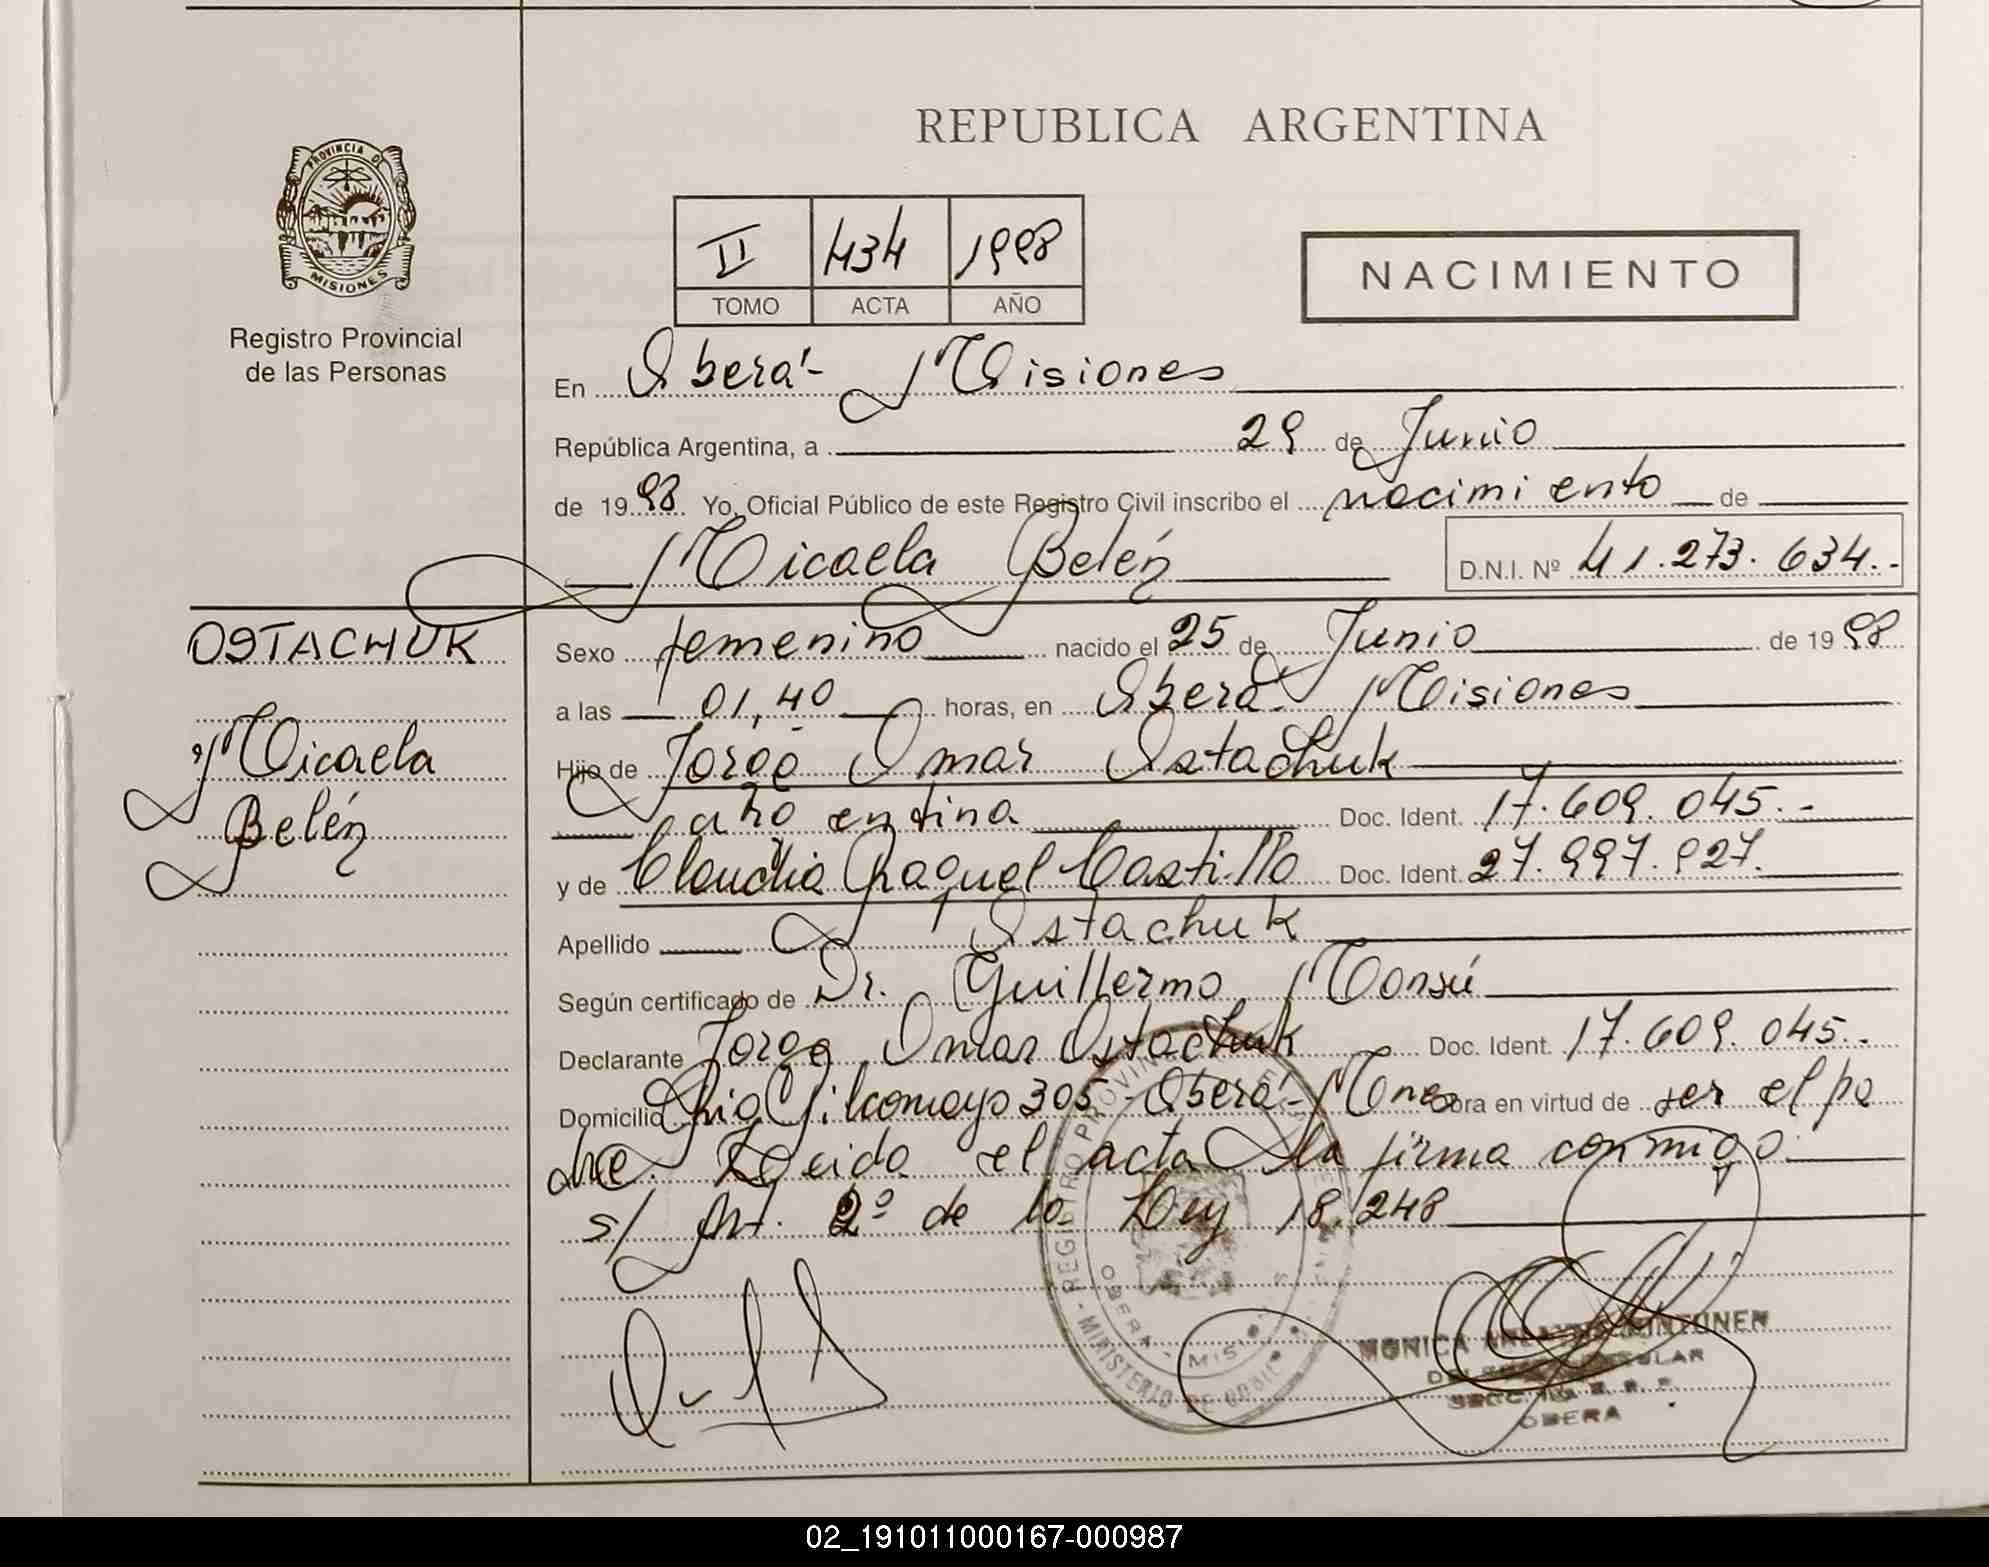 REPUBLICA ARGENTINA
PROVINCIA DE
MISIONES
Registro Provincial
de las Personas
II 434 1998
TOMO ACTA AÑO
NACIMIENTO
En Oberá - Misiones
República Argentina, a 29 de Junio
de 1998 Yo, Oficial Público de este Registro Civil inscribo el nacimiento de
Micaela Belén D.N.I. Nº 41.273.634.-
OSTACHUK
Micaela
Belén
Sexo femenino nacido el 25 de Junio de 1998
a las 01,40 horas, en Oberá - Misiones
Hijo de Jorge Omar Ostachuk
argentina Doc. Ident. 17.609.045.-
y de Claudia Raquel Castillo Doc. Ident. 27.997.927.
Apellido Ostachuk
Según certificado de Dr. Guillermo Monsú
Declarante Jorge Omar Ostachuk Doc. Ident. 17.609.045.-
Domicilio Pilcomayo 305 - Oberá - Mnes obra en virtud de ser el pa
dre. Leida el acta la firma conmigo.
s/ Art. 2º de la Ley 18.248
REGISTRO PROVINCIAL
OBERA - MISIONES
MINISTERIO DE
MONICA
OBERA
02_191011000167-000987